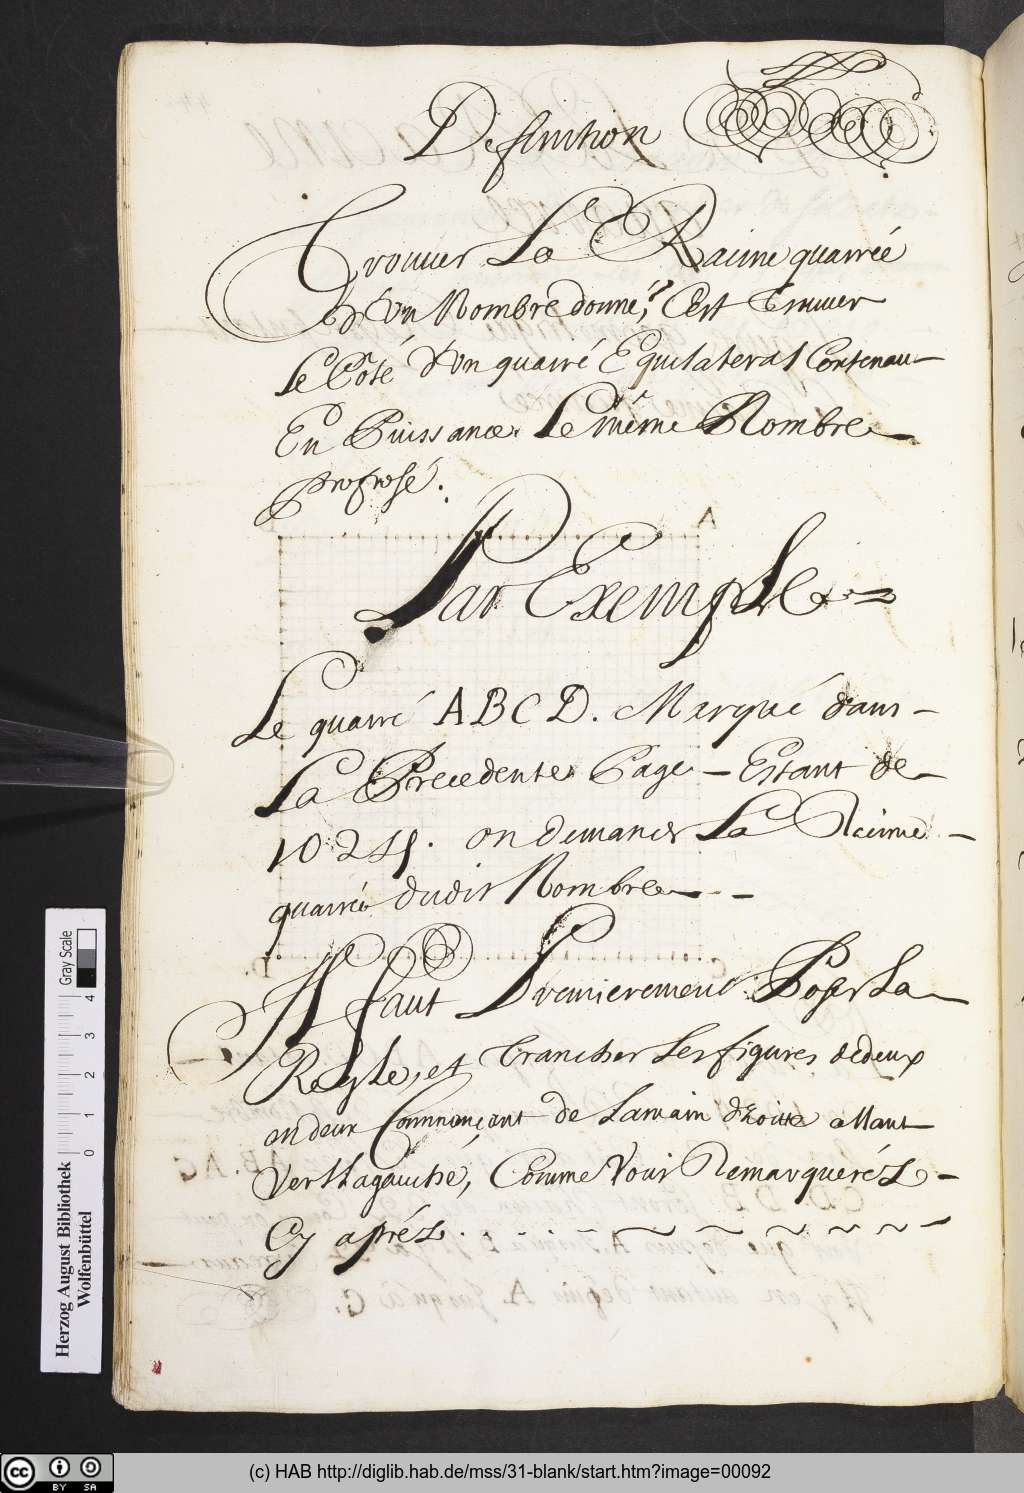 Definition
Trouver La Racine quarrée
d'Un Nombre donné, C'est Trouver
Le Côté d'Un quarré Equilateral Contenan
En Puissance Le même Nombre
proposé.
Par Exemple
Le quarré ABCD. Marqué dans
La Precedente Page Estant de
La Racine
quarrée dudit Nombre
Il faut Premierement Poser La
Regle, et trancher Les figures de deux
en deux Commençant de La main droitte allant
Vers La gauche, Comme Vous Remarquerés
Cy aprés
Gray Scale
0 1 2 3 4
Herzog August Bibliothek
Wolfenbüttel
cc BY SA
(c) HAB http://diglib.hab.de/mss/31-blank/start.htm?image=00092